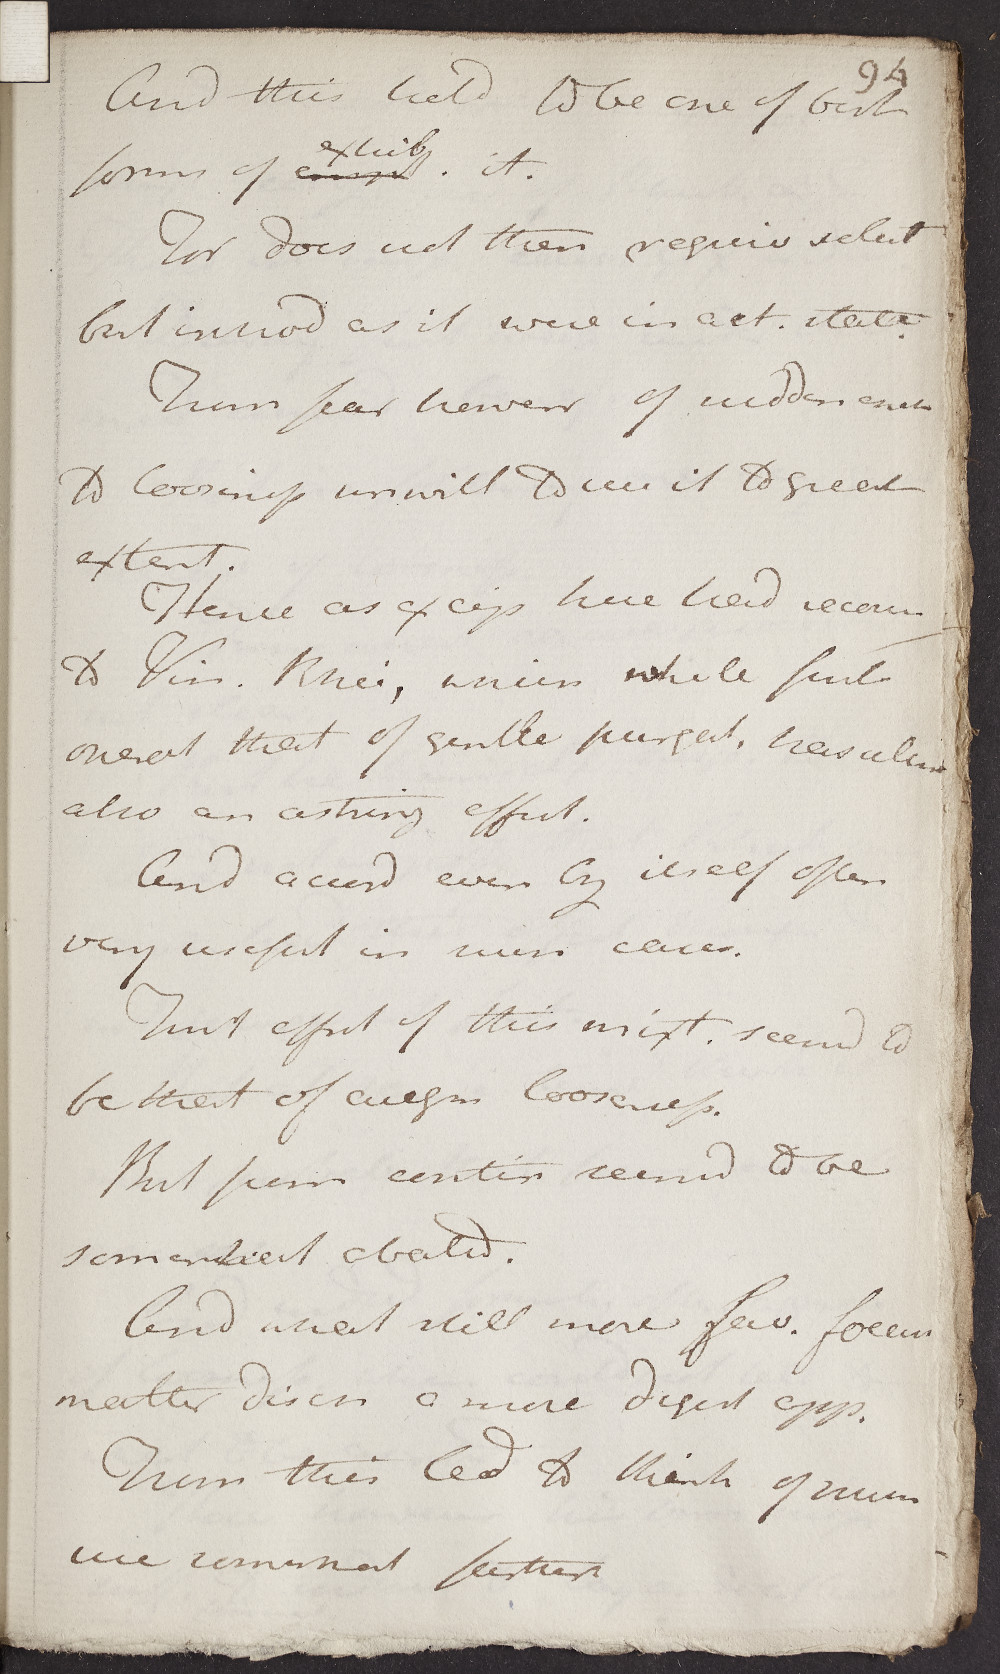 94
And this held to be one of best
forms of exhib. it.
For does not then requir select
but introd as it were in act. state.
From fear however of sudden
to loosness unwill to use it to great
extent.
Hence as excip here had recour
to Vin. Rhei, which while first
operat that of gentle purgat. has
also an astring effect.
And accord even by itself often
very useful in such cases.
First effect of this mixt. seemd to
be that of augm looseness.
But from contin seemd to be
somewhat abated.
And what still more fav. foecu
matter disch a more digest app.
From this led to think of
use somewhat further